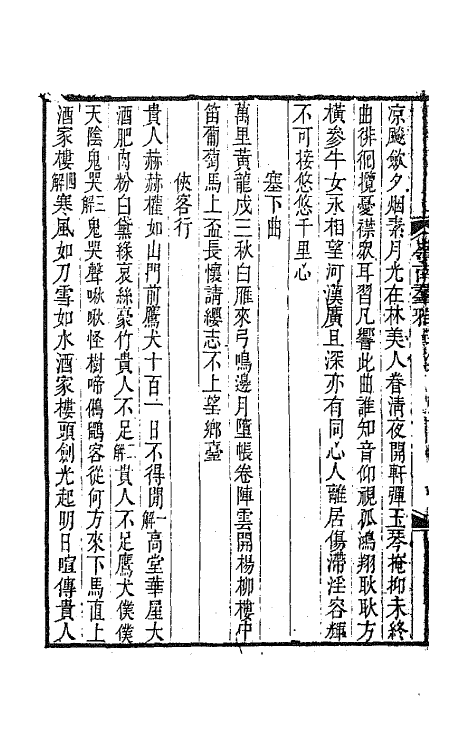 涼飈斂夕烟素月光在林美人眷淸夜開軒彈玉琴掩抑未終
曲徘徊攬憂襟眾耳習凡響此曲誰知音仰視孤鴻翔耿耿方
橫參牛女永相望河漢廣且深亦有同心人離居傷滯淫容輝
不可接悠悠千里心
塞下曲
萬里黃龍戍三秋白雁來弓鳴邊月墮帳卷陣雲開楊柳樓中
笛葡萄馬上盃長懷請纓志不上望鄉臺
俠客行
貴人赫赫權如山門前鷹犬十百一日不得閒一解高堂華屋大
酒肥肉粉白黛綠哀絲豪竹貴人不足二解貴人不足鷹犬僕僕
天陰鬼哭三解鬼哭聲啾啾怪樹啼鵂鶹客從何方來下馬直上
酒家樓四解寒風如刀雪如水酒家樓頭劍光起明日喧傳貴人